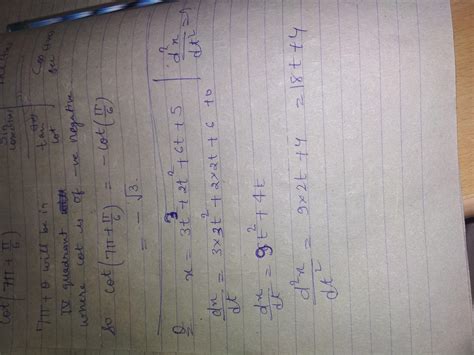 cot(7π + π/6)
7π + θ will be in
IV quadrant
where cot is of -ve negative
So cot(7π + π/6) = - cot(π/6)
= - √3
Q x = 3t³ + 2t² + 6t + 5 | d²x/dt² = ?
dx/dt = 3×3t² + 2×2t + 6 + 0
dx/dt = 9t² + 4t
d²x/dt² = 9×2t + 4 = 18t + 4